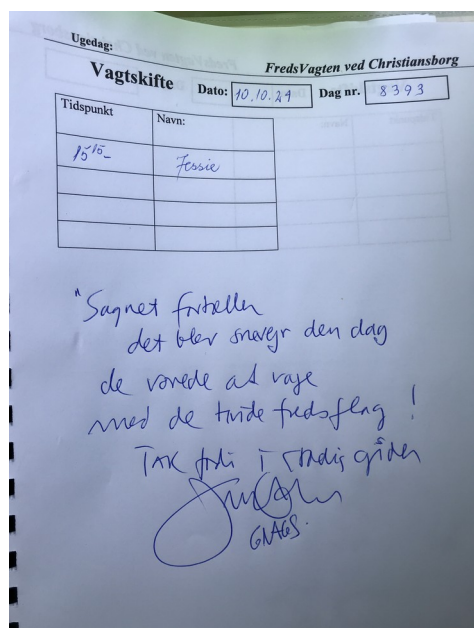 Ugedag:
FredsVagten ved Christiansborg
Vagtskifte Dato: 10.10.24 Dag nr. 8393
Tidspunkt Navn:
15 15- Jessie
"Sagnet fortæller
det blev snevejr den dag
de vovede at vaje
med de hvide fredsflag !
TAK fordi I stadig gider
GNAGS.